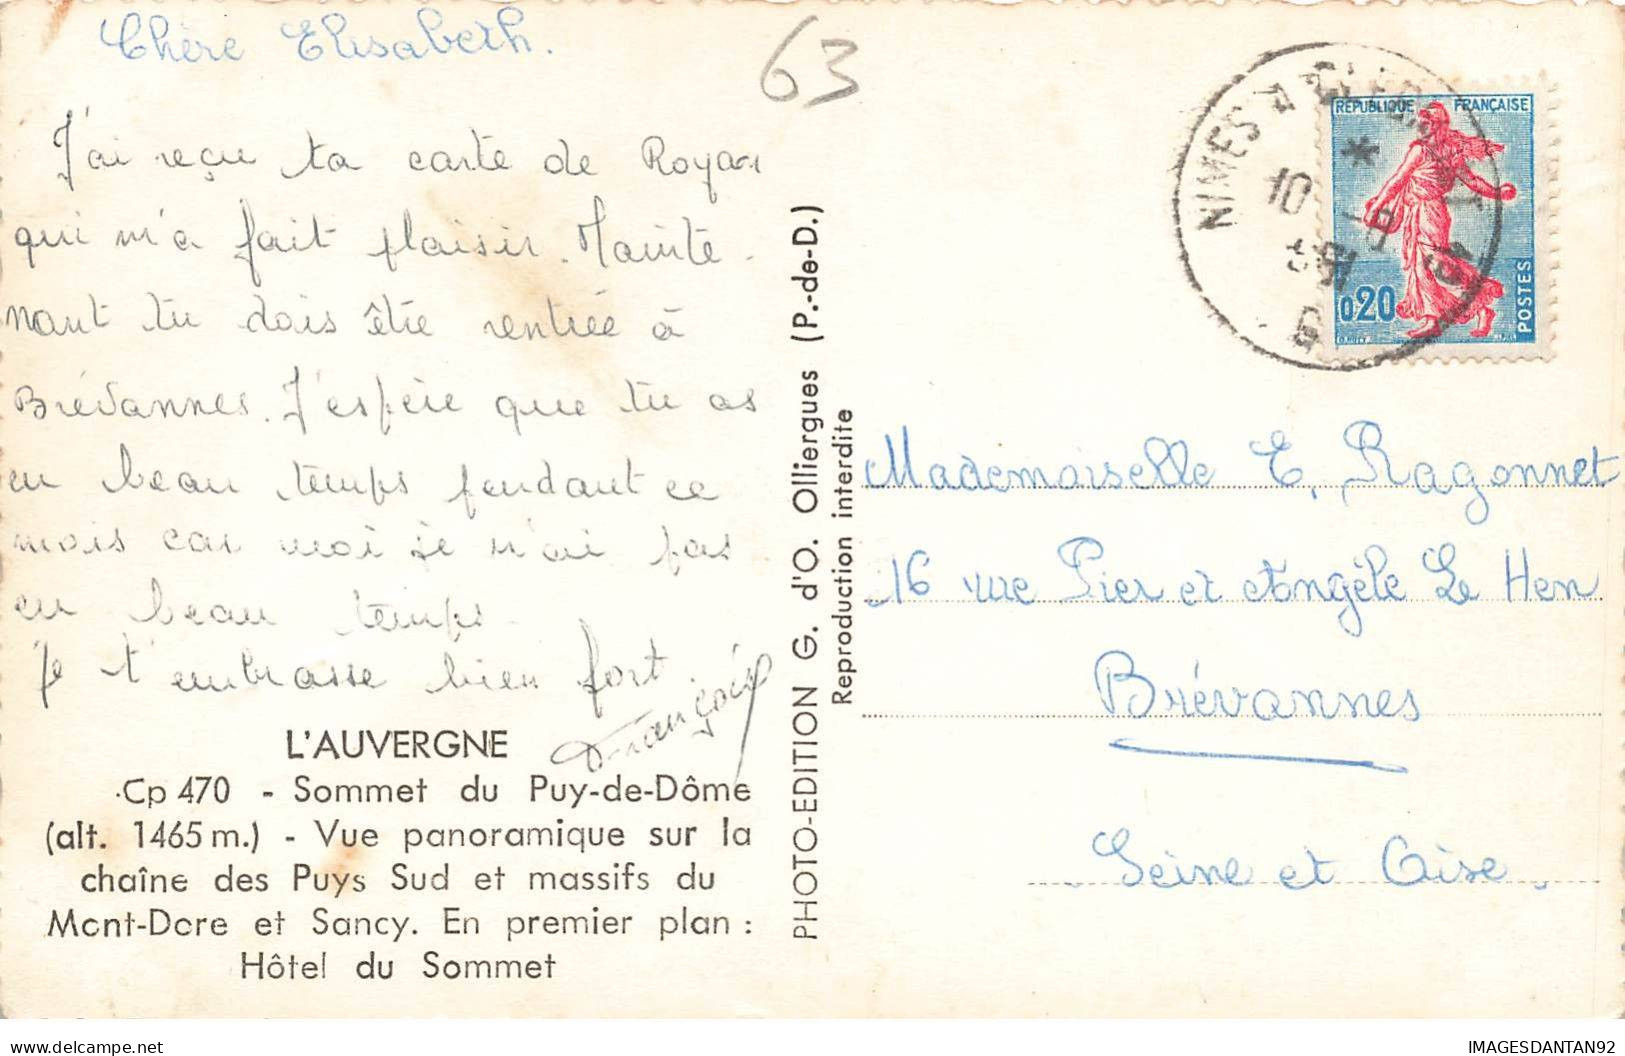 Chère Elisabeth.
63
J'ai reçu ta carte de Royan
qui m'a fait plaisir. Mainte-
nant tu dois être rentrée à
Brévannes. J'espère que tu as
eu beau temps pendant ce
mois car moi je n'ai pas
eu beau temps.
Je t'embrasse bien fort
François
L'AUVERGNE
Cp 470 - Sommet du Puy-de-Dôme
(alt. 1465 m.) - Vue panoramique sur la
chaîne des Puys Sud et massifs du
Mont-Dore et Sancy. En premier plan :
Hôtel du Sommet
PHOTO-EDITION G. d'O. Olliergues (P.-de-D.)
Reproduction interdite
NIMES A
10 -8
REPUBLIQUE FRANÇAISE
0,20
POSTES
Mademoiselle E. Ragonnet
16 rue Pier et Angèle Le Hen
Brévannes
Seine et Oise.
IMAGESDANTAN92
delcampe.net